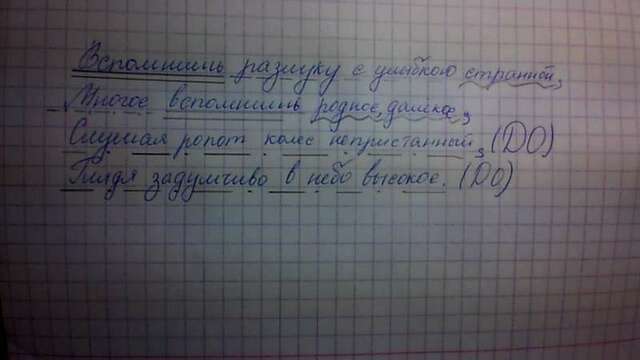 Вспомнишь разлуку с улыбкою странной,
Многое вспомнишь родное, далекое,
Слушая ропот колес непристанный, (ДО)
Глядя задумчиво в небо высокое. (ДО)